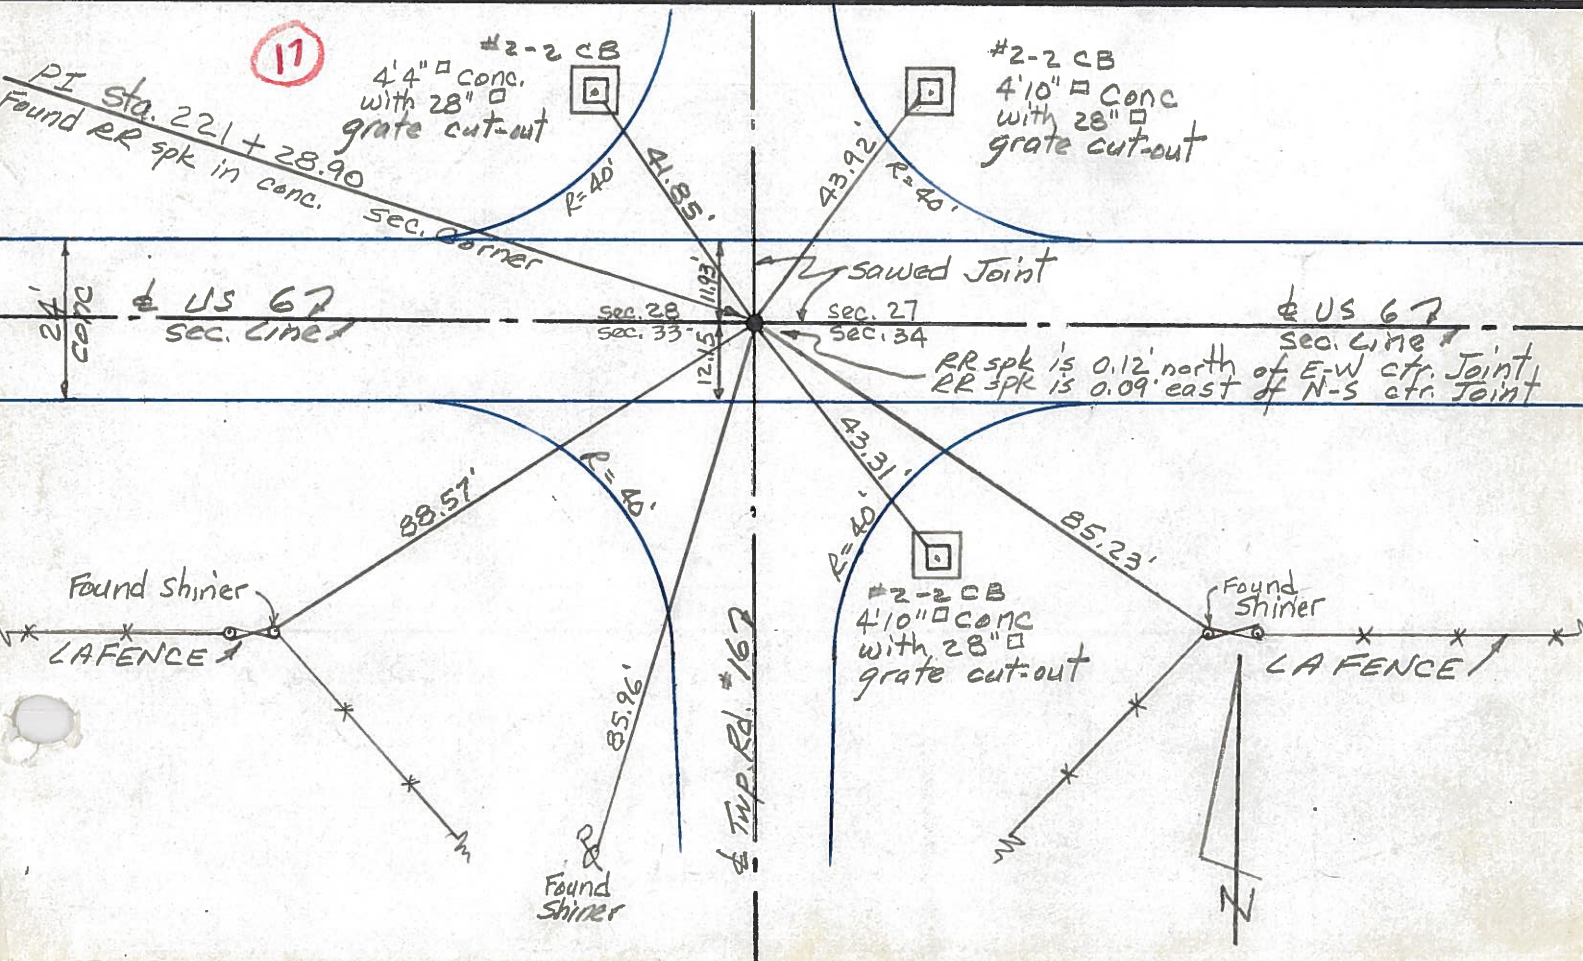 17
PI Sta. 221 + 28.90
Found RR spk in conc. sec. Corner
#2-2 CB
4'4" □ Conc.
with 28" □
grate cut-out
#2-2 CB
4'10" □ Conc
with 28" □
grate cut-out
R=40'
41.85'
43.92'
R=40'
24' Conc
℄ US 6
sec. Line
11.93'
12.15
Sawed Joint
sec. 28
sec. 33
sec. 27
sec. 34
℄ US 6
Sec. Line
RR spk is 0.12' north of E-W ctr. Joint
RR spk is 0.09' east of N-S ctr. Joint
88.57'
R=40'
43.31'
R=40'
85.23'
Found Shiner
LA FENCE
#2-2 CB
4'10" □ Conc
with 28" □
grate cut-out
Found
Shiner
LA FENCE
85.96'
℄ Twp. Rd. #167
Found
Shiner
N